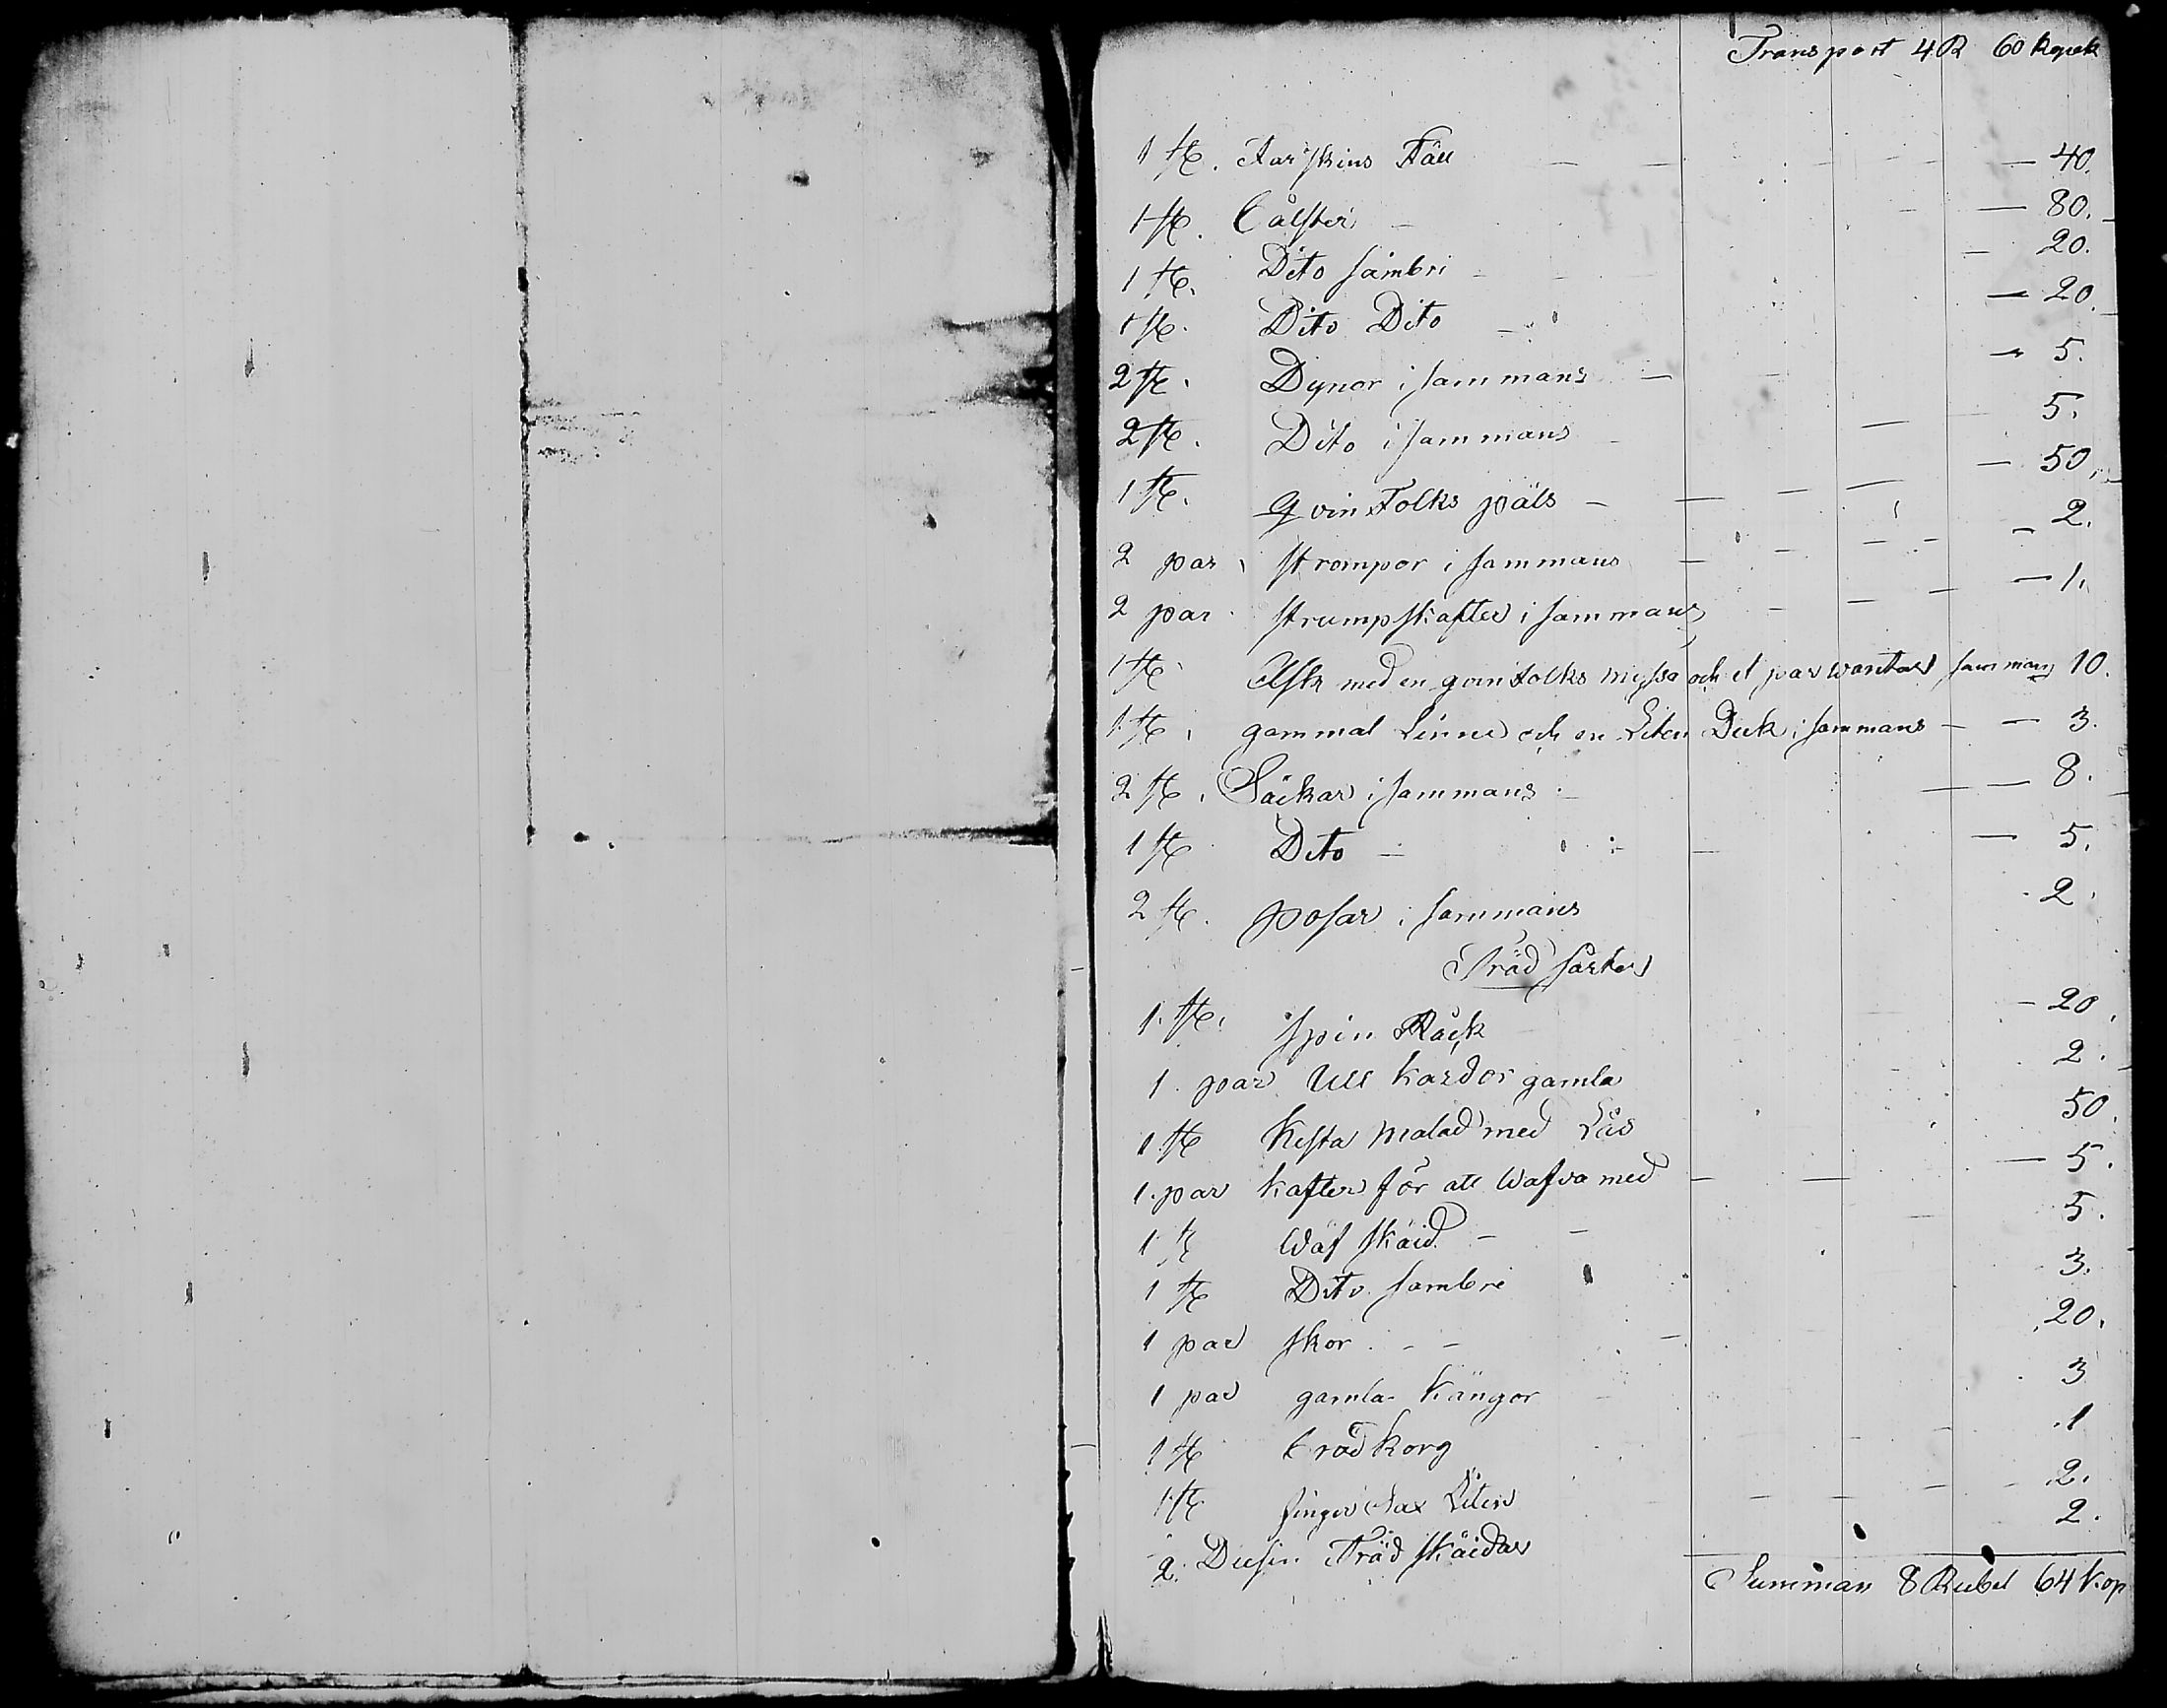 Transport 4 R 60 kopek
1 st. Farskins Fäll — — — 40.
1 st. Bålster — — 80.
1 st. Dito sämbri — 20.
1 st. Dito Dito — — 20.
2 st. Dynor i sammans — — 5.
2 st. Dito i sammans — 5.
1 st. qvinfolks päls — — — — 50.
2 par strompor i sammans — — 2.
2 par strumpskafter i sammans — — — 1.
1 st Ask med en qvinfolks myssa och et par wantar sammans 10.
1 st. gammal Linne och en Liten Duk i sammans — — 3.
2 st. Säckar i sammans — — 8.
1 st Dito — — — 5.
2 st. posar i sammans 2.
Träd saker
1. st. spin Råck — 20.
1. par Ull kardor gamla 2.
1 st Kista Malad med Lås 50.
1. par kafter för att Wäfva med — — — 5.
1 st Wäf skäid — — 5.
1 st Dito sambre 3.
1 par skor — — 20.
1 par gamla Kängor 3
1 st Bröd korg 1
1 st finger Sax Liten 2.
2. Dusin Träd skäidar 2.
Summan 8 Rubel 64 kop